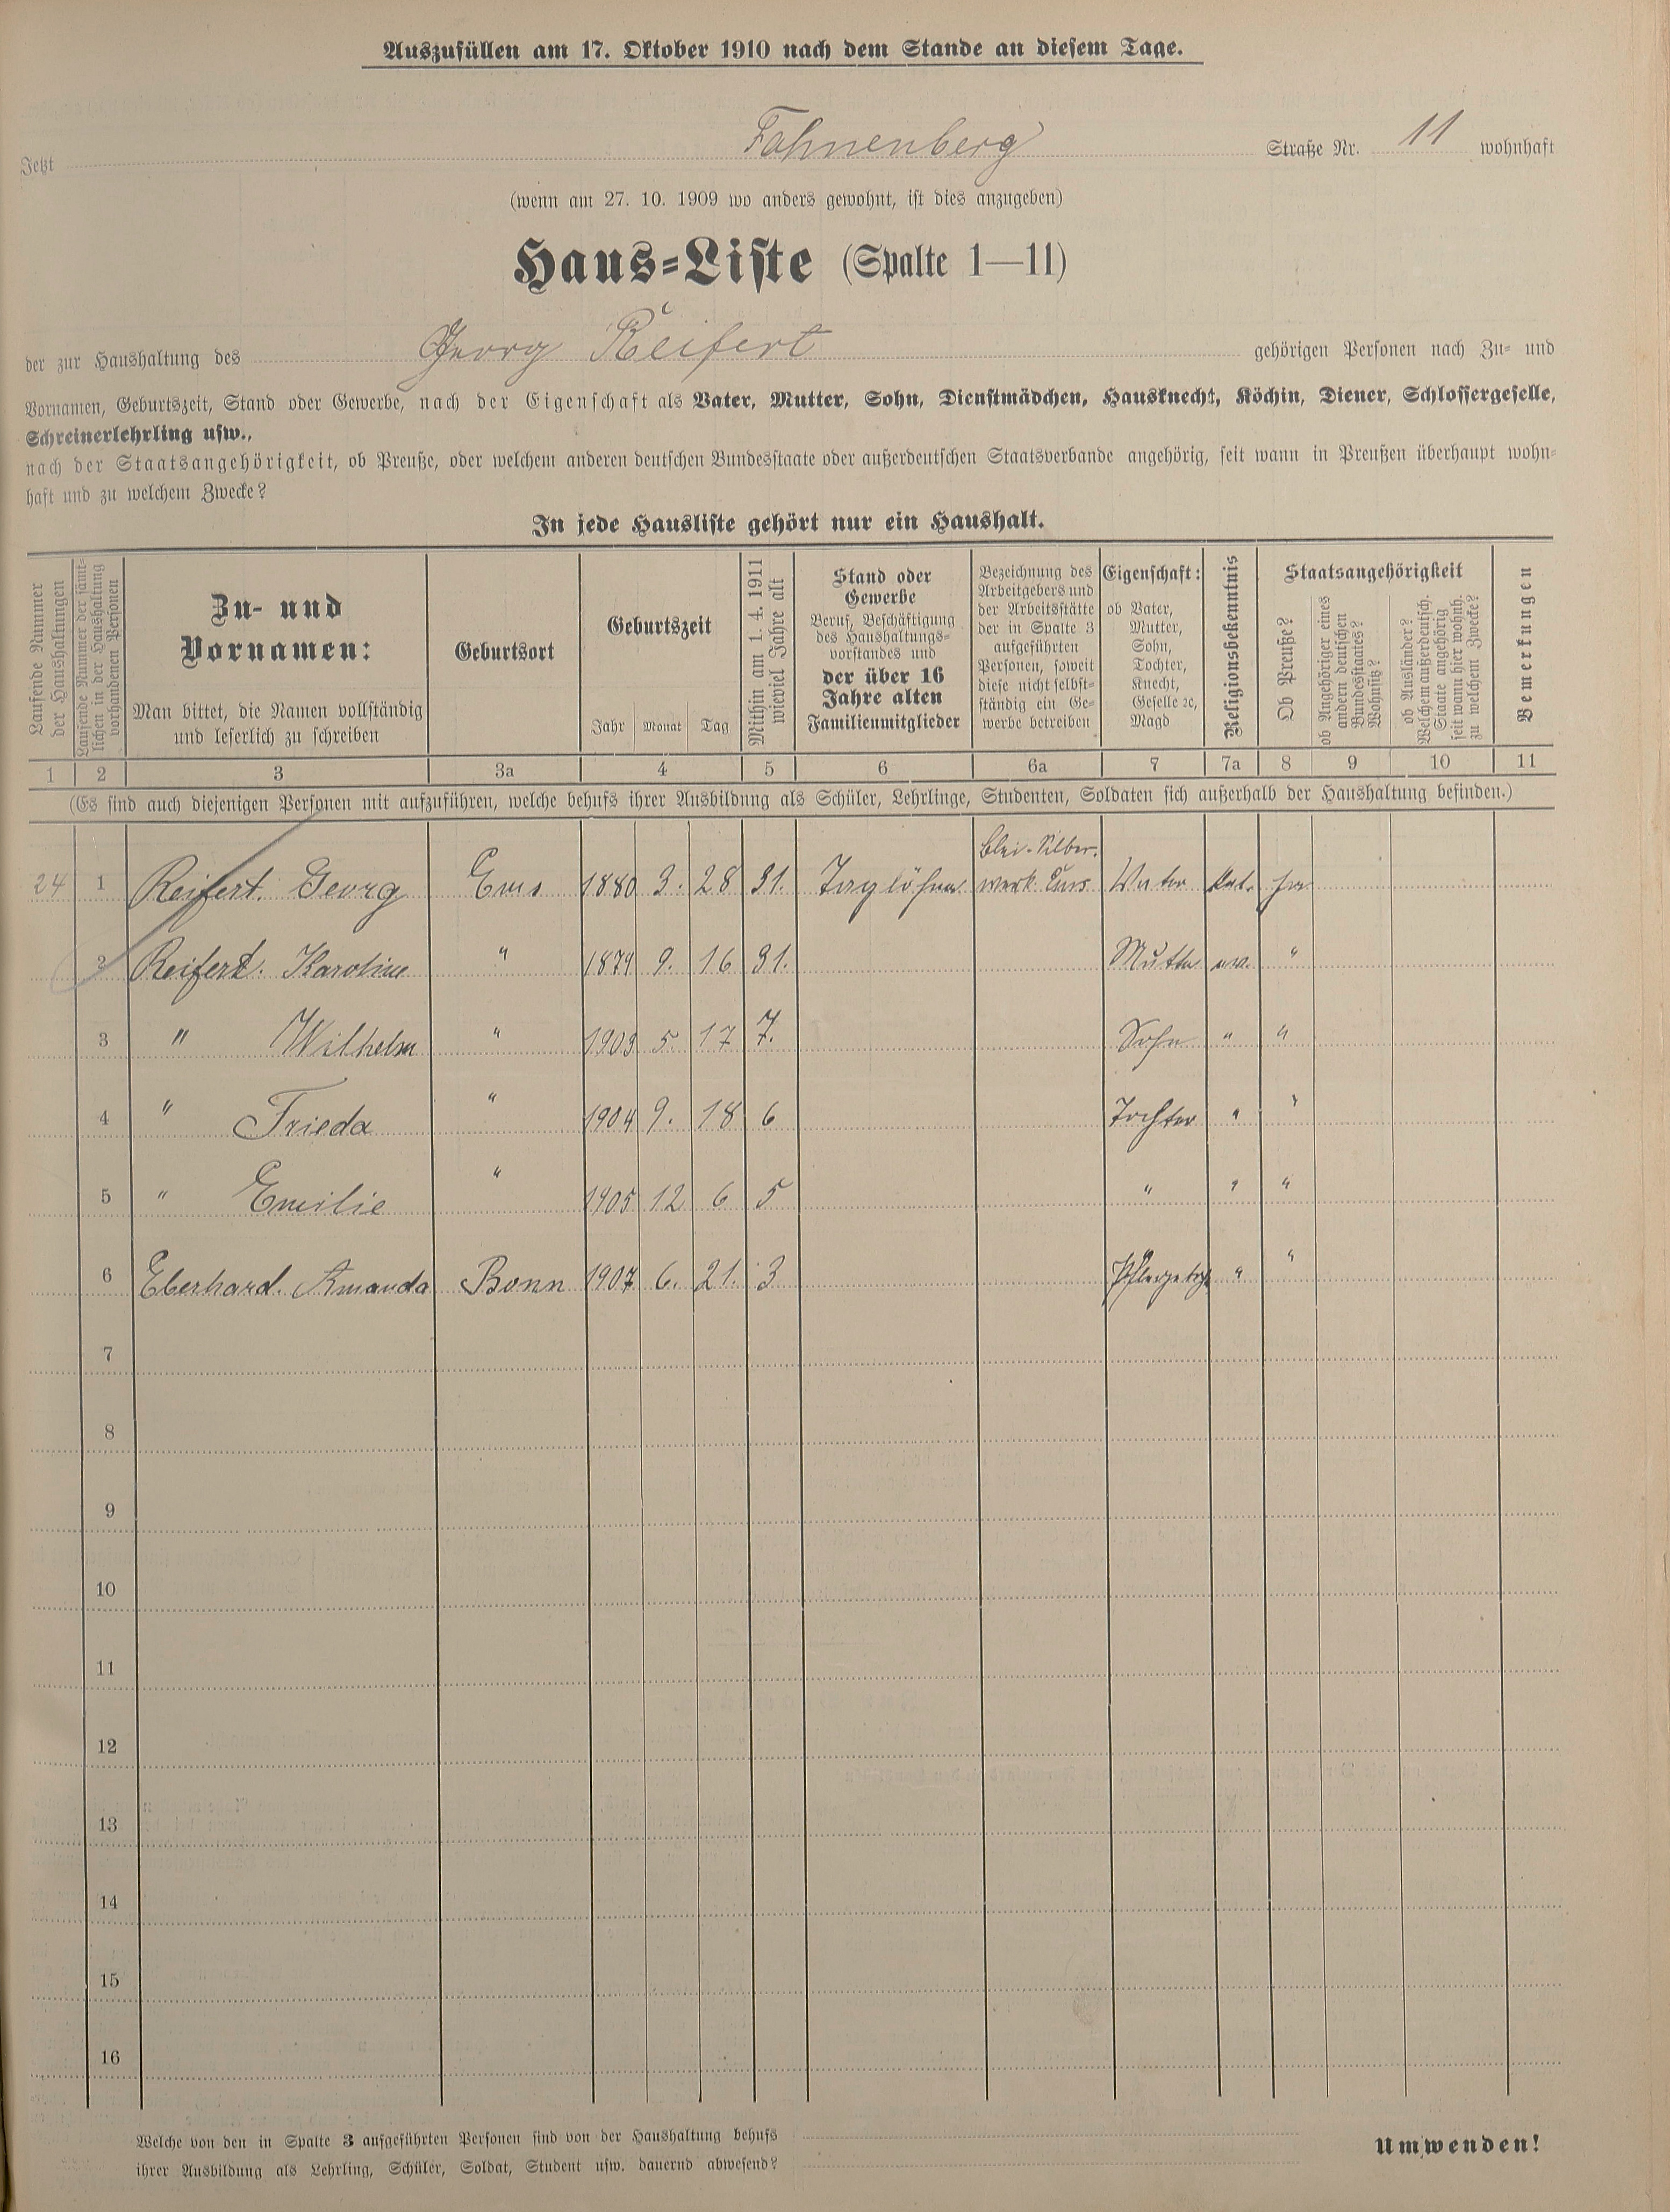 Auszufüllen am 17. Oktober 1910 nach dem Stande an diesem Tage.
Jetzt Fahnenberg Straße Nr. 11 wohnhaft
(wenn am 27. 10. 1909 wo anders gewohnt, ist dies anzugeben)
Haus-Liste (Spalte 1—11)
der zur Haushaltung des Georg Reifert gehörigen Personen nach Zu- und
Vornamen, Geburtszeit, Stand oder Gewerbe, nach der Eigenschaft als Vater, Mutter, Sohn, Dienstmädchen, Hausknecht, Köchin, Diener, Schlossergeselle,
Schreinerlehrling usw.,
nach der Staatsangehörigkeit, ob Preuße, oder welchem anderen deutschen Bundesstaate oder außerdeutschen Staatsverbande angehörig, seit wann in Preußen überhaupt wohn-
haft und zu welchem Zwecke?
In jede Hausliste gehört nur ein Haushalt.
Laufende Nummer
der Haushaltungen
Laufende Nummer der sämt-
lichen in der Haushaltung
vorhandenen Personen
Zu- und
Vornamen:
Man bittet, die Namen vollständig
und leserlich zu schreiben
Geburtsort
Geburtszeit
Jahr Monat Tag
Mithin am 1. 4. 1911
wieviel Jahre alt
Stand oder
Gewerbe
Beruf, Beschäftigung
des Haushaltungs-
vorstandes und
der über 16
Jahre alten
Familienmitglieder
Bezeichnung des
Arbeitgebers und
der Arbeitsstätte
der in Spalte 3
aufgeführten
Personen, soweit
diese nicht selbst-
ständig ein Ge-
werbe betreiben
Eigenschaft:
ob Vater,
Mutter,
Sohn,
Tochter,
Knecht,
Geselle ꝛc,
Magd
Religionsbekenntnis
Staatsangehörigkeit
Ob Preuße?
ob Angehöriger eines
andern deutschen
Bundesstaates?
Wohnsitz?
ob Ausländer?
Welchem außerdeutsch.
Staate angehörig
seit wann hier wohnh.
zu welchem Zwecke?
Bemerkungen
1 2 3 3a 4 5 6 6a 7 7a 8 9 10 11
(Es sind auch diejenigen Personen mit aufzuführen, welche behufs ihrer Ausbildung als Schüler, Lehrlinge, Studenten, Soldaten sich außerhalb der Haushaltung befinden.)
Blei-Silber.
24 1 Reifert. Georg Ems 1880 3. 28 31. Taglöhner werk. Ems Vater kat. ja
2 Reifert. Karoline " 1879 9. 16 31. Mutter ev. "
3 " Wilhelm " 1903 5. 17 7. Sohn " "
4 " Frieda " 1904 9. 18 6 Tochter " "
5 " Emilie " 1905 12 6 5 " " "
6 Eberhard. Amanda Bonn 1907 6. 21. 3 " "
7
8
9
10
11
12
13
14
15
16
Welche von den in Spalte 3 aufgeführten Personen sind von der Haushaltung behufs
ihrer Ausbildung als Lehrling, Schüler, Soldat, Student usw. dauernd abwesend?
Umwenden!